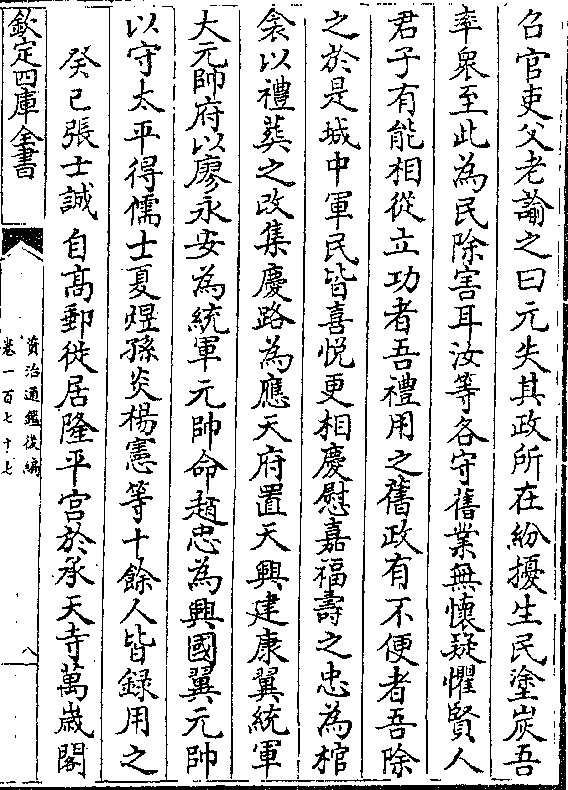 召官吏父老諭之曰元失其政所在紛擾生民塗炭吾
率衆至此為民除害耳汝等各守舊業無懷疑懼賢人
君子有能相從立功者吾禮用之舊政有不便者吾除
之於是城中軍民皆喜悦更相慶慰嘉福壽之忠為棺
衾以禮葬之改集慶路為應天府置天興建康翼統軍
大元帥府以廖永安為統軍元帥命趙忠為興國翼元帥
以守太平得儒士夏煜孫炎楊憲等十餘人皆録用之
癸已張士誠自髙郵徙居隆平宫於承天寺萬嵗閣
欽定四庫全書
資治通鑑後編
卷一百七十七
八